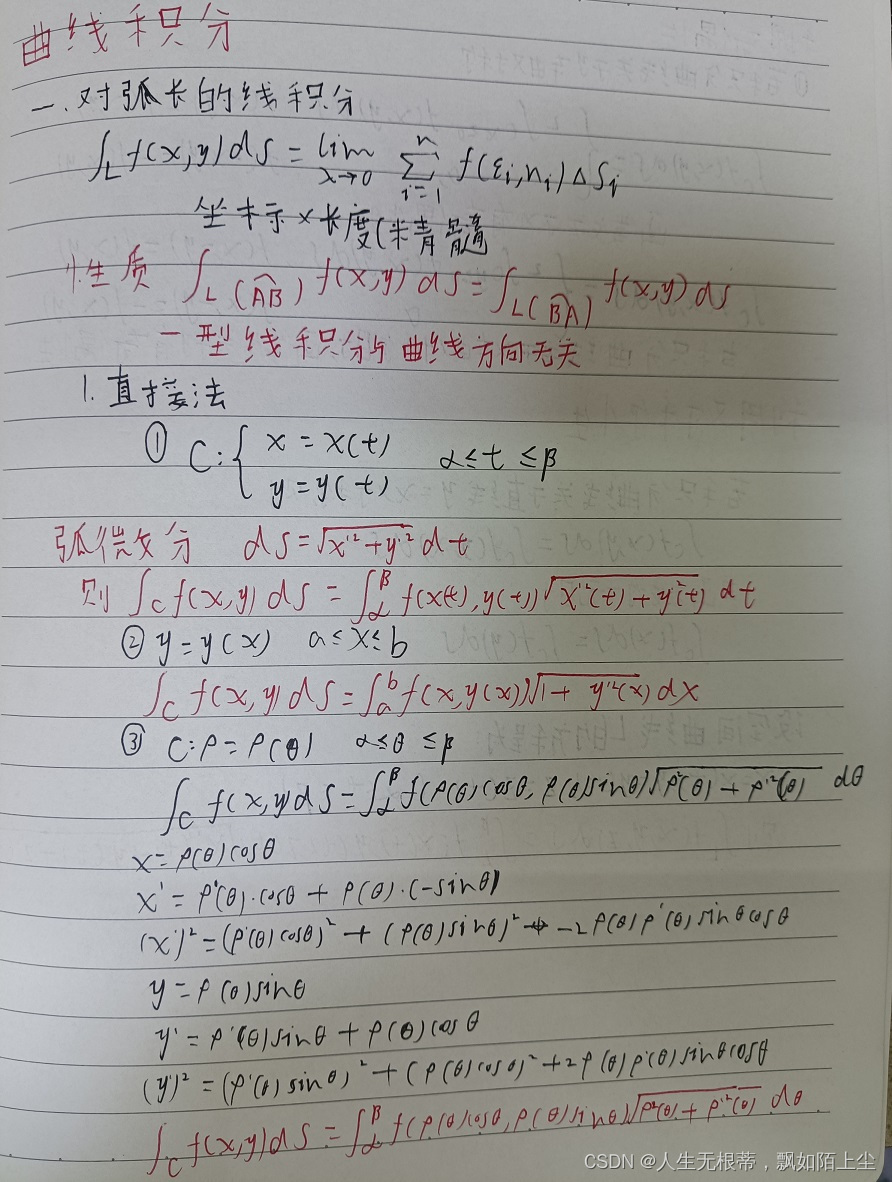 曲线积分
一.对弧长的线积分
∫_L f(x,y)ds = lim_{λ→0} Σ_{i=1}^{n} f(ε_i,η_i)Δs_i
坐标×长度(米青骨髓
性质 ∫_{L(⌒AB)} f(x,y)ds = ∫_{L(⌒BA)} f(x,y)ds
一型线积分与曲线方向无关
1.直接法
① C:{ x=x(t)
y=y(t) α≤t≤β
弧微分 ds=√(x'²+y'²) dt
则 ∫_C f(x,y)ds = ∫_α^β f(x(t),y(t))√(x'²(t)+y'²(t)) dt
② y=y(x) a≤x≤b
∫_C f(x,y)ds = ∫_a^b f(x,y(x))√(1+y'²(x)) dx
③ C:ρ=ρ(θ) α≤θ≤β
∫_C f(x,y)ds = ∫_α^β f(ρ(θ)cosθ, ρ(θ)sinθ)√(ρ²(θ)+ρ'²(θ)) dθ
x=ρ(θ)cosθ
x'=ρ'(θ)·cosθ+ρ(θ)·(-sinθ)
(x')²=(ρ'(θ)cosθ)²+(ρ(θ)sinθ)²-2ρ(θ)ρ'(θ)sinθcosθ
y=ρ(θ)sinθ
y'=ρ'(θ)sinθ+ρ(θ)cosθ
(y')²=(ρ'(θ)sinθ)²+(ρ(θ)cosθ)²+2ρ(θ)ρ'(θ)sinθcosθ
∫_C f(x,y)ds = ∫_α^β f(ρ(θ)cosθ,ρ(θ)sinθ)√(ρ²(θ)+ρ'²(θ)) dθ
CSDN @人生无根蒂，飘如陌上尘